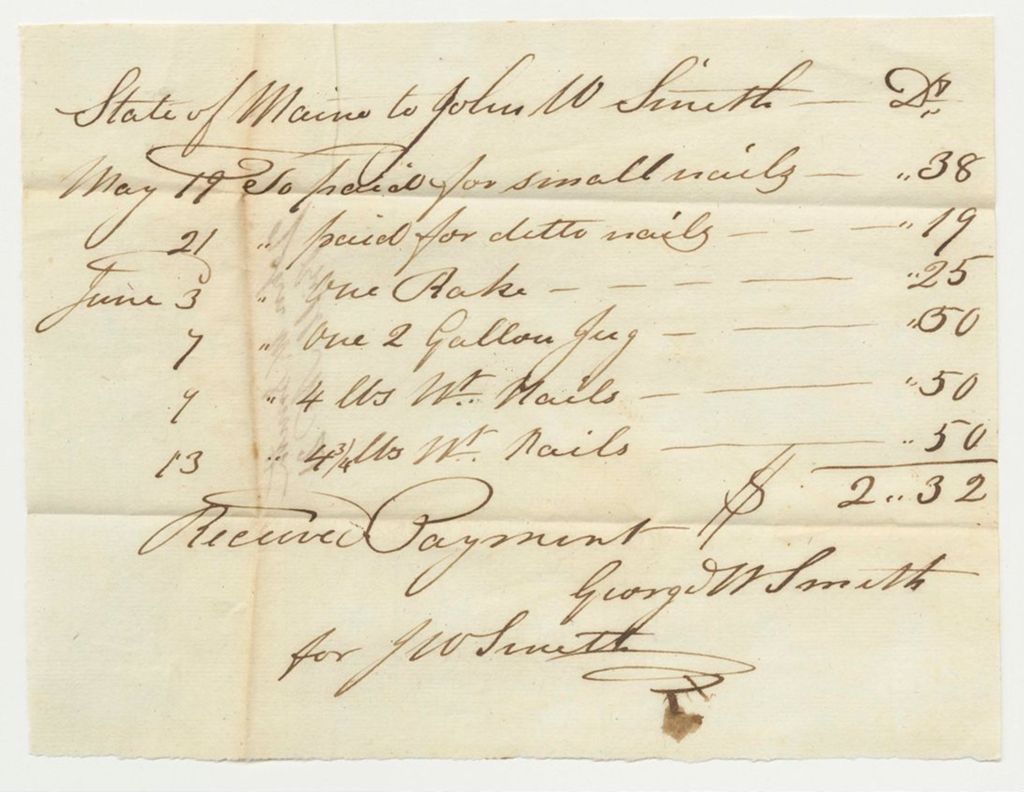 State of Maine to John W Smith — Dr
May 19 To paid for small nails — " 38
21 " paid for ditto nails — — — " 19
June 3 " One Rake — — — — — " 25
7 " One 2 Gallon Jug — — — " 50
9 " 4 lbs Wt. Nails — — — " 50
13 " 4 3/4 lbs Wt. Nails — — " 50
$ 2 " 32
Received Payment
George W Smith
for J W Smith